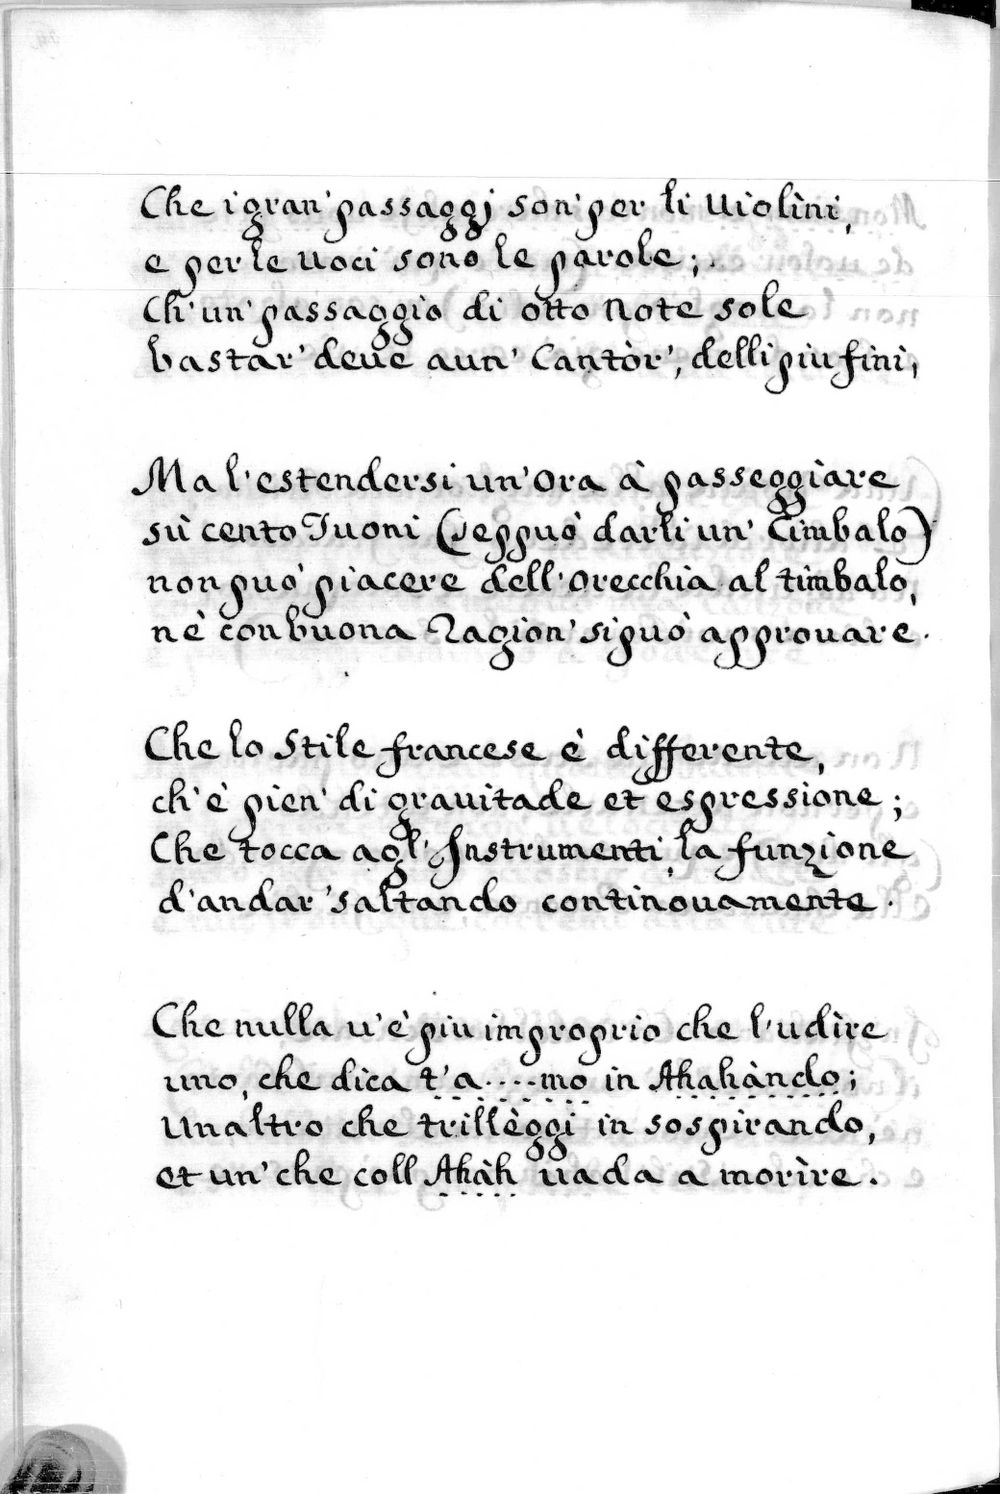 Che i gran' passaggi son' per li Uiolìni,
e per le uoci sono le parole;
Ch' un' passaggio di otto note sole
bastar' deue a un' Cantòr', delli piu fini;
Ma l'estendersi un' Ora à passeggiàre
sù cento Tuoni (se ppuò darli un' Cimbalo)
non può piacere dell'Orecchia al tìmbalo,
nè con buona Ragion' si può approuare.
Che lo Stile francese è differente,
ch'è pien' di grauitade et espressione;
Che tocca agl' Instrumenti la funzione
d'andar' saltando continouamente.
Che nulla u'è piu improprio che l'udìre
uno, che dica t'a....mo in Ahahàndo;
Un altro che trillèggi in sospirando,
et un' che coll Ahàh uada a morìre.